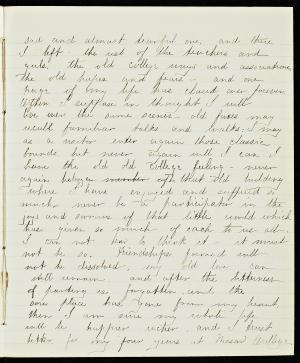 sad and almost tearful one, and there
I left the rest of the teachers and
girls, the old college views and associations
the old hopes and fears, and one
page of my life has closed over forever.
Often I suppose in thought I will
live over the same scenes - old faces may
recall familiar talks and walks, I may
as a visitor enter again those classic
bounds but never again will I can I
have the old old College feeling - never
again belong with that old building
where I have enjoyed and suffered so
much never be a participator in the
joys and sorrows of that little world which
has given so much of each to us all.
I can not bear to think it - it must
not be so. Friendships formed will
not be dissolved, my old love can
still remain and after the bitterness
of parting is forgotten, and the
sore place has gone from my heart,
then I am sure my whole life
will be happier richer, and I trust
better for my four years at Wells College.